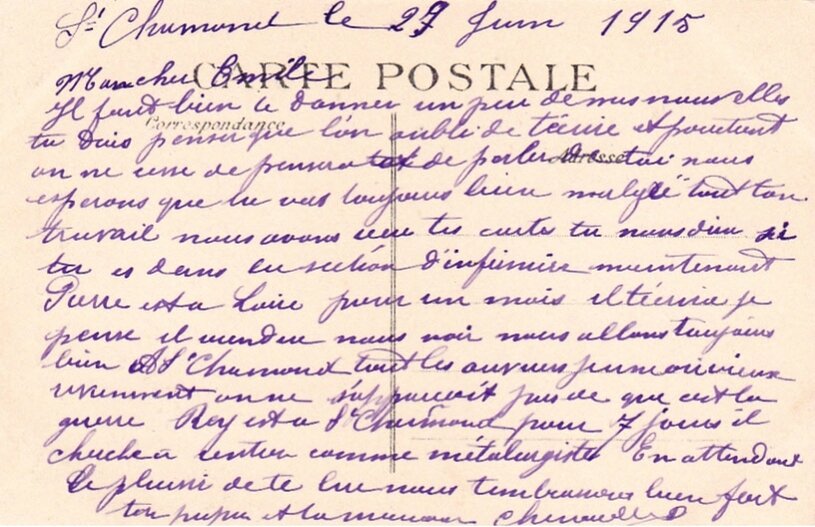 St Chamond le 27 Juin 1915
CARTE POSTALE
Mon cher Emile
Il faut bien te donner un peu de nos nouvelles
Correspondance
tu dois penser que l'on oublie de técrire et pourtant
Adresse
on ne cesse de penser a toi de parler de toi nous
esperons que tu vas toujours bien malgré tout ton
travail nous avons recu tes cartes tu nous diras si
tu es dans la section d'infirmire maintenant
Pierre est a Loire pour un mois il técrira je
pense il viendra nous voir nous allons toujours
bien A St Chamond tout les ouvriers
reviennent on ne pas de que cest la
guerre Rey est a St Chamond pour 7 jours il
cherche a rentrer comme métalurgiste En attendant
le plaisir de te lire nous tembrassons bien fort
ton papa et ta maman